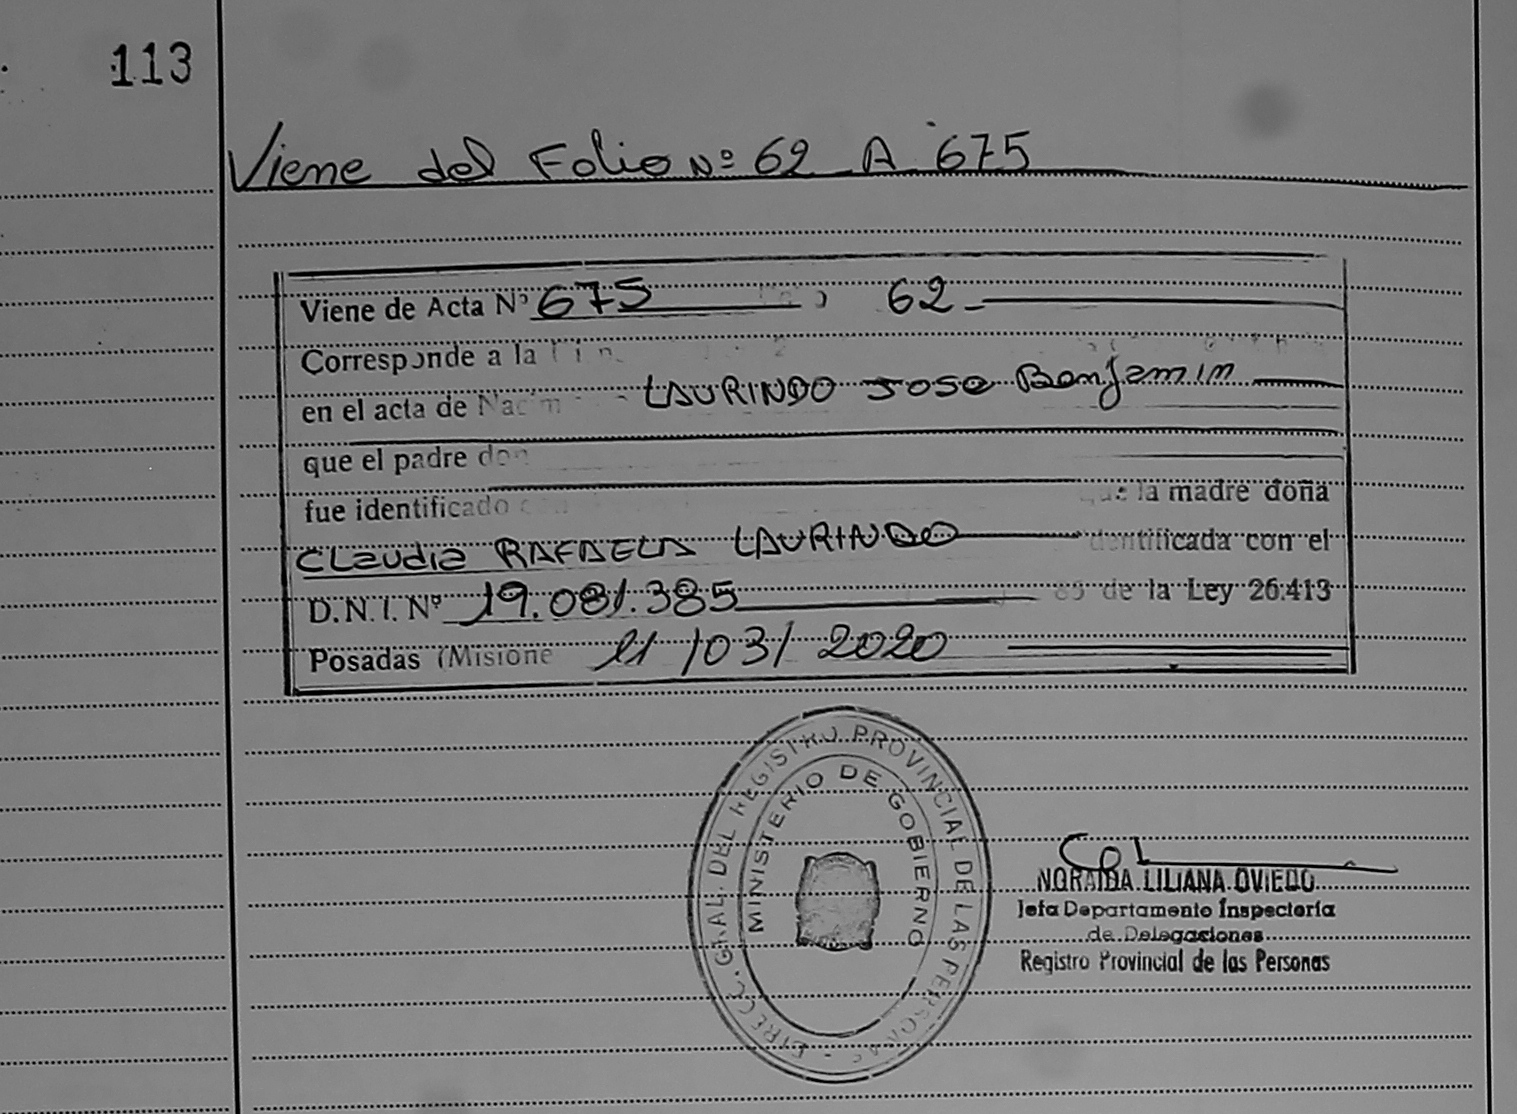 113
Viene del Folio Nº 62 A 675
Viene de Acta Nº 675 62
Corresponde a la
en el acta de LAURINDO Jose Benjamin
que el padre don
fue identificado
que la madre doña
Claudia RAFAELA LAURINDO identificada con el
D.N.I. Nº 19.081.385 85 de la Ley 26.413
Posadas (Misione 11/03/2020
DIRECC. GRAL. DEL REGISTRO PROVINCIAL DE LAS PERSONAS
MINISTERIO DE GOBIERNO
NORAIDA LILIANA OVIEDO
Jefa Departamento Inspectoría
de Delegaciones
Registro Provincial de las Personas